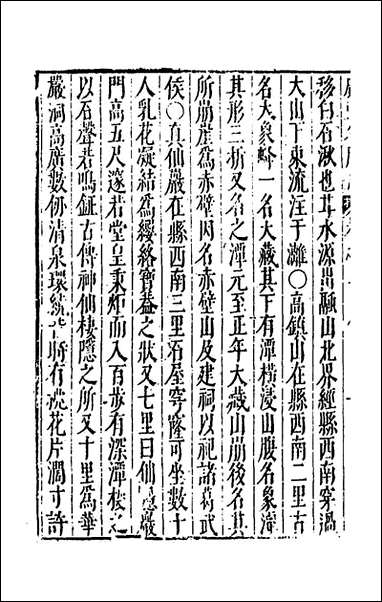 移白石湫也其水源出融山北界經縣西南穿過
大山下東流注于灕〇高鎮山在縣西南二里古
名大象峰一名大藏其下有潭楞浸山腹名象濤
其形三折又名之潭元至正年大藏山崩後名其
所崩崖爲赤壁因名赤壁山及建祠以祀諸葛武
侯〇真仙巖在縣西南三里石屋穹窿可坐數十
人乳花凝結爲纓絡寶蓋之狀又七里曰仙隱巖
門高五尺邃若堂皇秉炬而入百步有深潭棱之
以石聲若鳴鉦古傳神仙棲隱之所又十里爲華
巖洞高廣數仞清泉環繞時有桃花片濶寸許